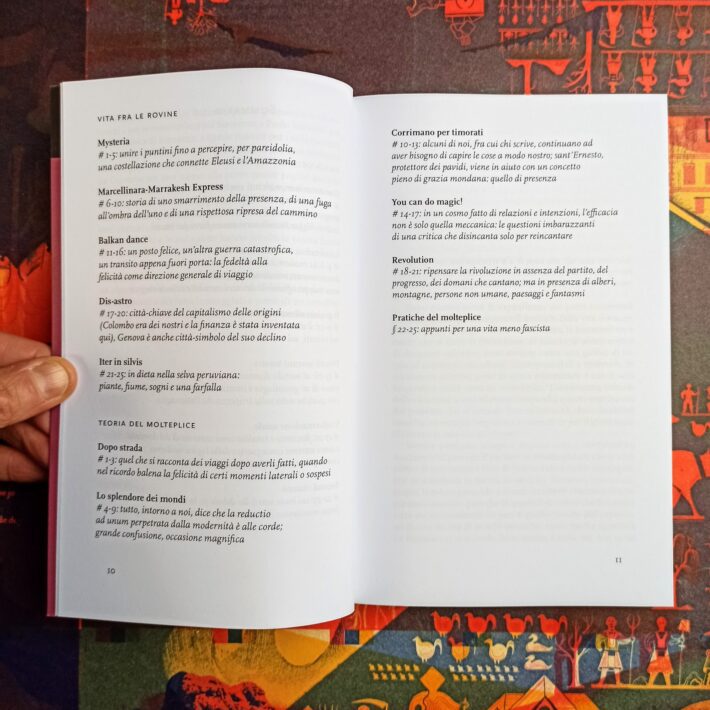 VITA FRA LE ROVINE
Mysteria
# 1-5: unire i puntini fino a percepire, per pareidolia,
una costellazione che connette Eleusi e l'Amazzonia
Marcellinara-Marrakesh Express
# 6-10: storia di uno smarrimento della presenza, di una fuga
all'ombra dell'uno e di una rispettosa ripresa del cammino
Balkan dance
# 11-16: un posto felice, un'altra guerra catastrofica,
un transito appena fuori porta: la fedeltà alla
felicità come direzione generale di viaggio
Dis-astro
# 17-20: città-chiave del capitalismo delle origini
(Colombo era dei nostri e la finanza è stata inventata
qui), Genova è anche città-simbolo del suo declino
Iter in silvis
# 21-25: in dieta nella selva peruviana:
piante, fiume, sogni e una farfalla
TEORIA DEL MOLTEPLICE
Dopo strada
# 1-3: quel che si racconta dei viaggi dopo averli fatti, quando
nel ricordo balena la felicità di certi momenti laterali o sospesi
Lo splendore dei mondi
# 4-9: tutto, intorno a noi, dice che la reductio
ad unum perpetrata dalla modernità è alle corde;
grande confusione, occasione magnifica
10
Corrimano per timorati
# 10-13: alcuni di noi, fra cui chi scrive, continuano ad
aver bisogno di capire le cose a modo nostro; sant'Ernesto,
protettore dei pavidi, viene in aiuto con un concetto
pieno di grazia mondana: quello di presenza
You can do magic!
# 14-17: in un cosmo fatto di relazioni e intenzioni, l'efficacia
non è solo quella meccanica: le questioni imbarazzanti
di una critica che disincanta solo per reincantare
Revolution
# 18-21: ripensare la rivoluzione in assenza del partito, del
progresso, dei domani che cantano; ma in presenza di alberi,
montagne, persone non umane, paesaggi e fantasmi
Pratiche del molteplice
§ 22-25: appunti per una vita meno fascista
11